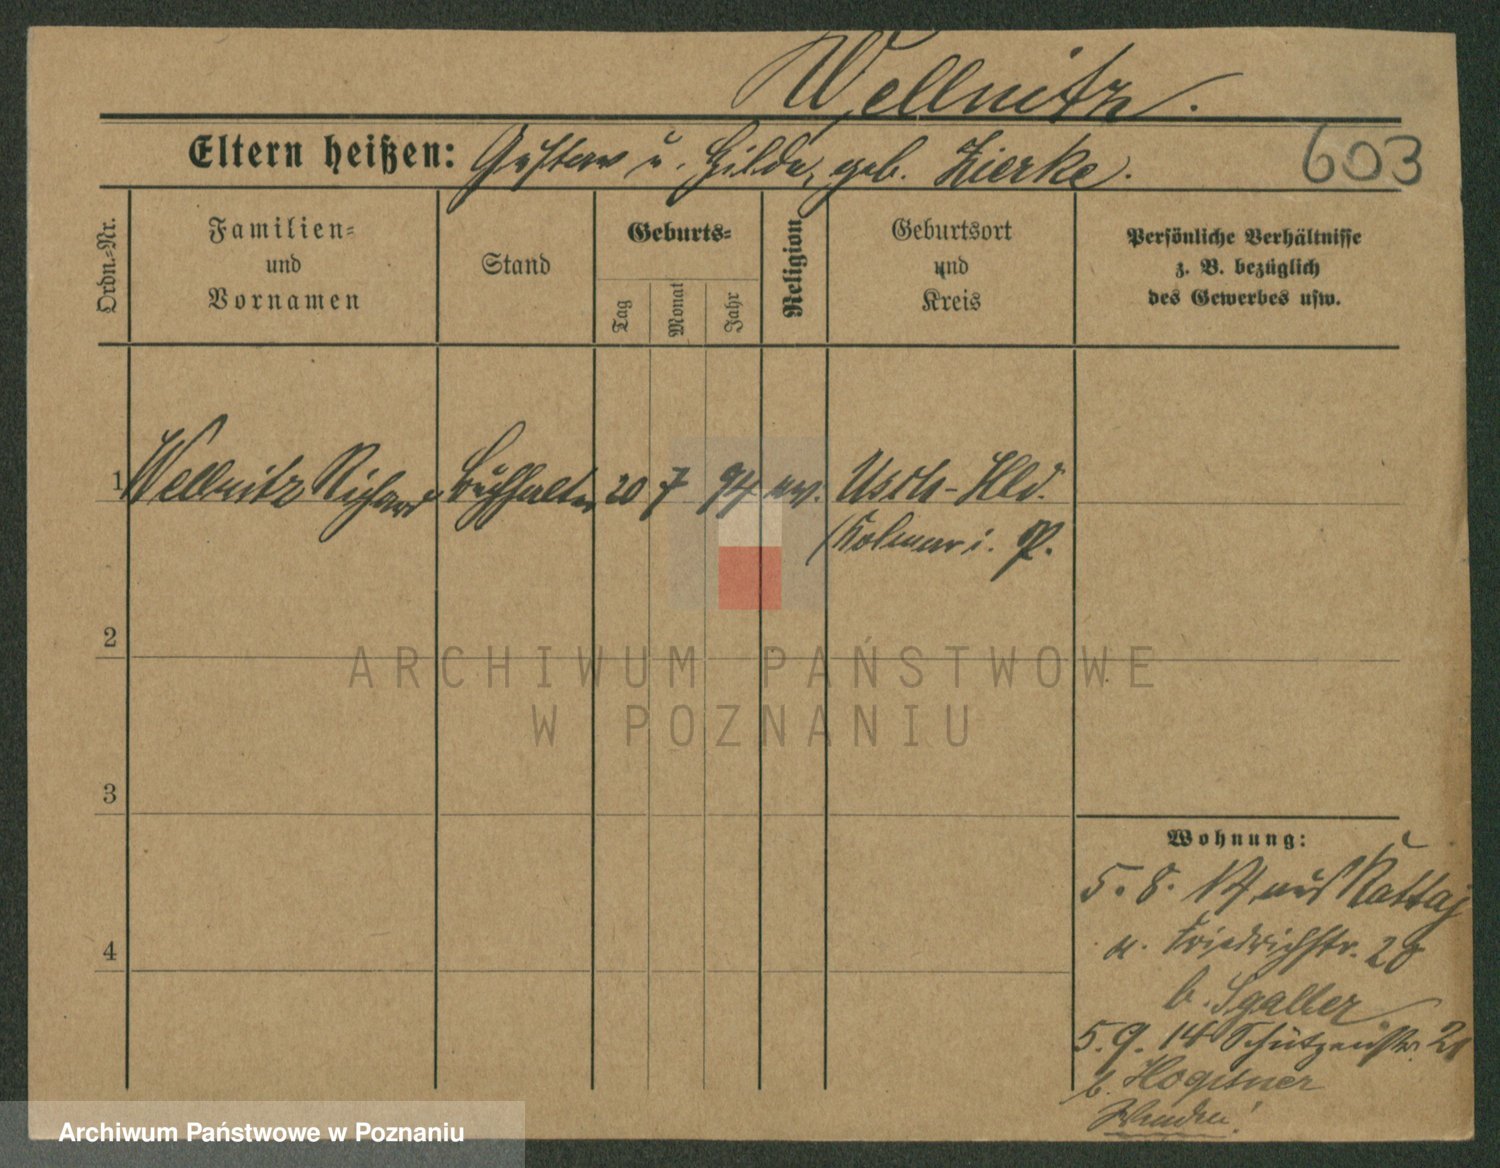 Wellnitz.
Eltern heißen: Gustav u. Hilda, geb. Zierke.
603
Ordn.-Nr.
Familien-
und
Vornamen
Stand
Geburts-
Tag
Monat
Jahr
Religion
Geburtsort
und
Kreis
Persönliche Verhältnisse
z. B. bezüglich
des Gewerbes usw.
1 Wellnitz Richard Buchhalter 20 7 94 ev. Usch-Hld.
Kolmar i. P.
2
3
4
Wohnung:
5. 8. 14 aus
u. Friedrichstr. 28
b.
5. 9. 14 Schützenstr. 21
b.
Wenden!
ARCHIWUM PAŃSTWOWE
W POZNANIU
Archiwum Państwowe w Poznaniu